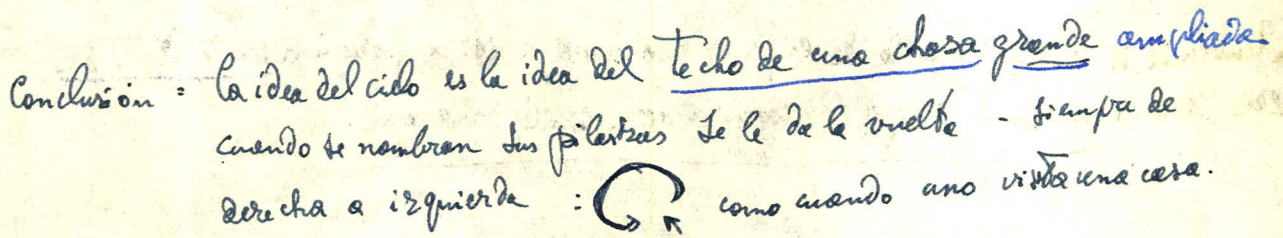 Conclusión = La idea del cielo es la idea del techo de una chosa grande ampliada
cuando se nombran sus pilastras se le da la vuelta - siempre de
derecha a izquierda : como cuando uno visita una casa.